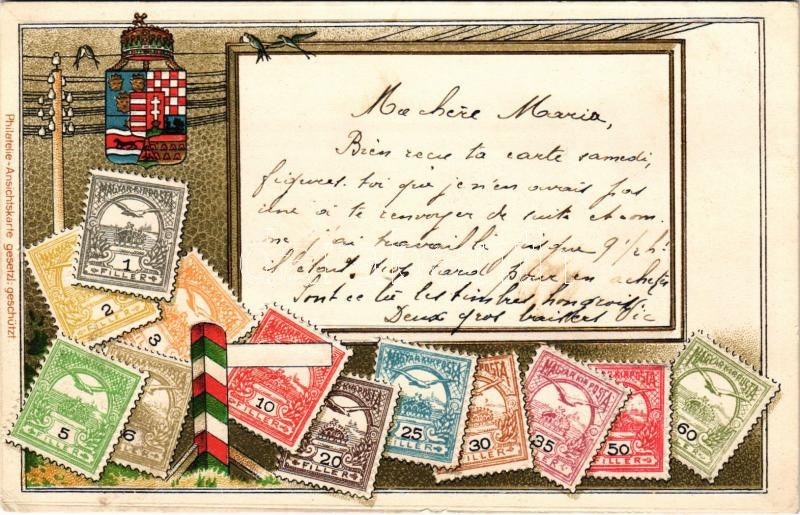 Philatelie-Ansichtskarte gesetzl: geschützt.
Ma chère Maria,
Bien recu ta carte samedi,
figures-toi que je n'en avais pas
une à te renvoyer de suite et com-
me j'ai travaillé jusque 9 1/2 h
il était trop tard pour en acheter
Sont ce là les timbres hongrois
Deux gros baisers Vic
MAGYAR KIR. POSTA
1
FILLER
2
3
MAGYAR KIR. POSTA
5
FILLER
6
10
FILLER
20
FILLER
MAGYAR KIR. POSTA
25
FILLER
30
FILLER
MAGYAR KIR. POSTA
35
50
FILLER
MAGYAR KIR. POSTA
60